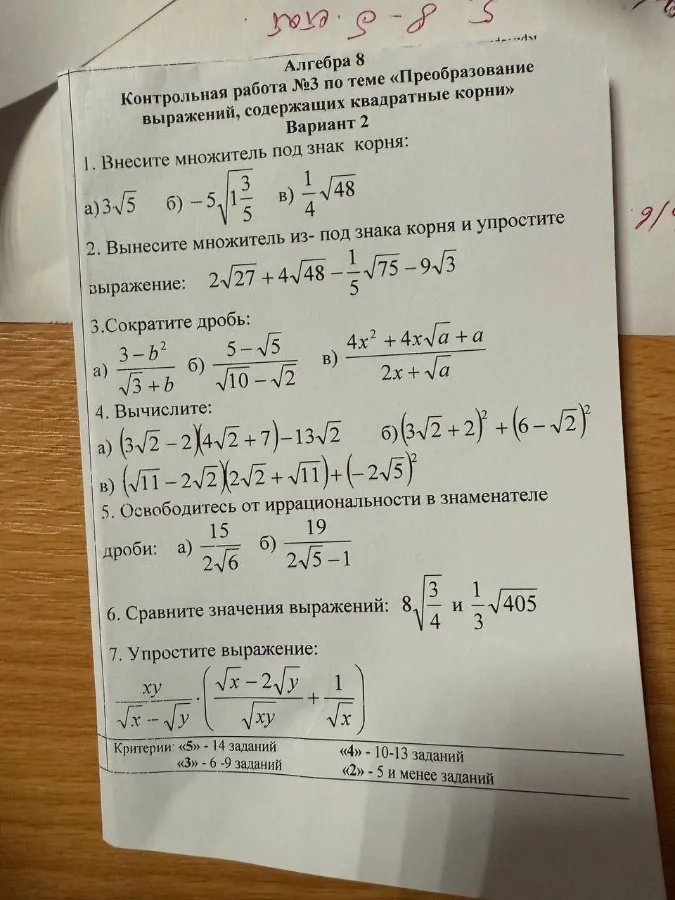 5 8-5.
Алгебра 8
Контрольная работа №3 по теме «Преобразование
выражений, содержащих квадратные корни»
Вариант 2
1. Внесите множитель под знак корня:
а) 3√5 б) −5√(1 3/5) в) 1/4 √48
2. Вынесите множитель из- под знака корня и упростите
выражение: 2√27 + 4√48 − 1/5 √75 − 9√3
3.Сократите дробь:
а) (3 − b²)/(√3 + b) б) (5 − √5)/(√10 − √2) в) (4x² + 4x√a + a)/(2x + √a)
4. Вычислите:
а) (3√2 − 2)(4√2 + 7) − 13√2 б) (3√2 + 2)² + (6 − √2)²
в) (√11 − 2√2)(2√2 + √11) + (−2√5)²
5. Освободитесь от иррациональности в знаменателе
дроби: а) 15/(2√6) б) 19/(2√5 − 1)
6. Сравните значения выражений: 8√(3/4) и 1/3 √405
7. Упростите выражение:
xy/(√x − √y) · ((√x − 2√y)/√xy + 1/√x)
Критерии: «5» - 14 заданий «4» - 10-13 заданий
«3» - 6 -9 заданий «2» - 5 и менее заданий